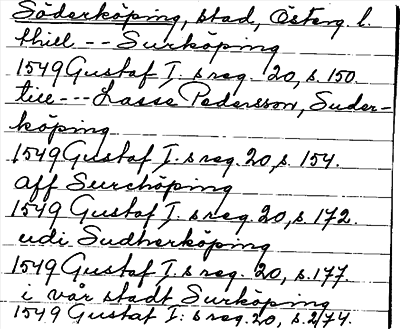 Söderköping, stad, Österg. l.
thill -- Surköping
1549 Gustaf I. s reg. 20, s. 150.
till --- Lasse Pedersson, Suder-
köping
1549 Gustaf I. s reg. 20, s. 154.
aff Surchöping
1549 Gustaf I. s reg. 20, s. 172.
udi Sudherköping
1549 Gustaf I. s reg. 20, s. 177.
i vår stadt Surköping
1549 Gustaf I. s reg. 20, s. 274.